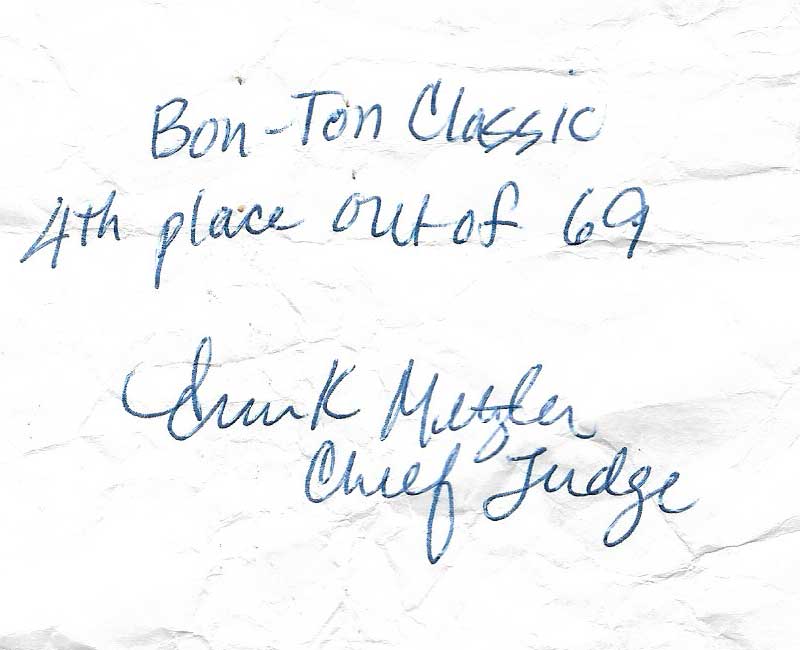 Bon-Ton Classic
4th place out of 69
Metzler
Chief Judge